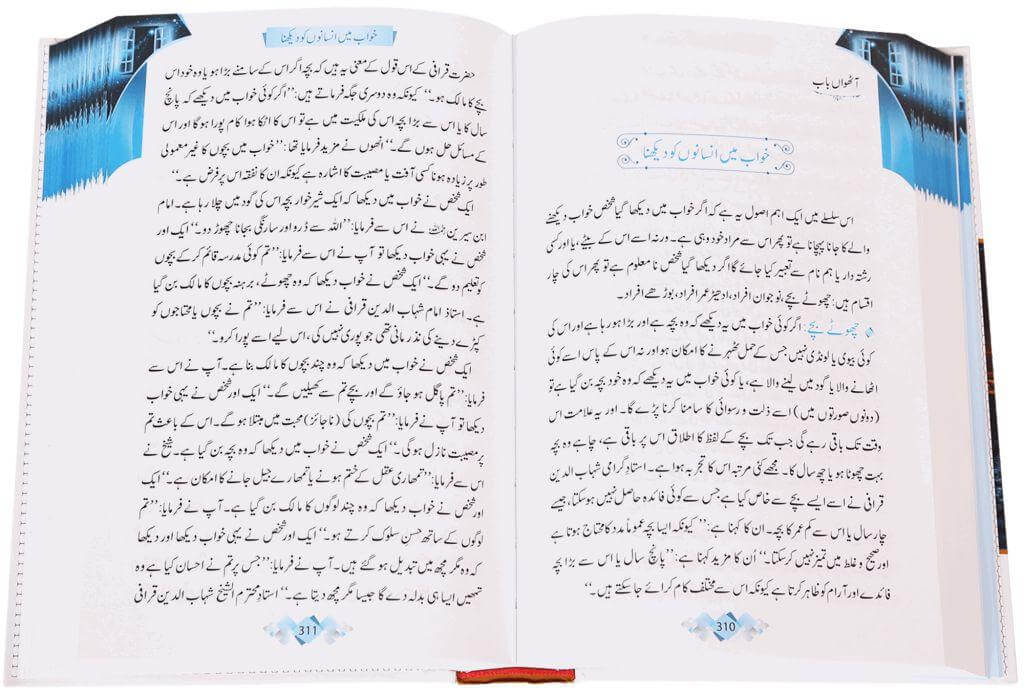 آٹھواں باب
خواب میں انسانوں کو دیکھنا
اس سلسلے میں ایک اہم اصول یہ ہے کہ اگر خواب میں دیکھا گیا شخص خواب دیکھنے
والے کا جانا پہچانا ہے تو پھر اس سے مراد خود وہی ہے۔ ورنہ اسے اس کے بیٹے، یا اور کسی
رشتہ دار یا ہم نام سے تعبیر کیا جائے گا اگر دیکھا گیا شخص نا معلوم ہے تو پھر اس کی چار
اقسام ہیں: چھوٹے بچے، نوجوان افراد، ادھیڑ عمر افراد، بوڑھے افراد۔
چھوٹے بچے: اگر کوئی خواب میں یہ دیکھے کہ وہ بچہ ہے اور بڑا ہو رہا ہے اور اس کی
کوئی بیوی یا لونڈی نہیں جس کے حمل ٹھہرنے کا امکان ہو اور نہ اس کے پاس اسے کوئی
اٹھانے والا یا گود میں لینے والا ہے، یا کوئی خواب میں یہ دیکھے کہ وہ خود بچہ بن گیا ہے تو
(دونوں صورتوں میں) اسے ذلت و رسوائی کا سامنا کرنا پڑے گا۔ اور یہ علامت اس
وقت تک باقی رہے گی جب تک بچے کے لفظ کا اطلاق اس پر باقی ہے، چاہے وہ بچہ
بہت چھوٹا ہو یا چھ سال کا۔ مجھے کئی مرتبہ اس کا تجربہ ہوا ہے۔ استاد گرامی شہاب الدین
قرافی نے اسے ایسے بچے سے خاص کیا ہے جس سے کوئی فائدہ حاصل نہیں ہو سکتا، جیسے
چار سال یا اس سے کم عمر کا بچہ۔ ان کا کہنا ہے: ’’کیونکہ ایسا بچہ عموماً مدد کا محتاج ہوتا ہے
اور صحیح و غلط میں تمیز نہیں کر سکتا۔‘‘ اُن کا مزید کہنا ہے: ’’پانچ سال یا اس سے بڑا بچہ
فائدے اور آرام کو ظاہر کرتا ہے کیونکہ اس سے مختلف کام کرائے جا سکتے ہیں۔‘‘
310
خواب میں انسانوں کو دیکھنا
حضرت قرافی کے اس قول کے معنی یہ ہیں کہ بچہ اگر اس کے سامنے بڑا ہو یا وہ خود اس
بچے کا مالک ہو۔‘‘ کیونکہ وہ دوسری جگہ فرماتے ہیں: ’’اگر کوئی خواب میں دیکھے کہ پانچ
سال کا یا اس سے بڑا بچہ اس کی ملکیت میں ہے تو اس کا اٹکا ہوا کام پورا ہو گا اور اس
کے مسائل حل ہوں گے۔‘‘ انھوں نے مزید فرمایا تھا: ’’خواب میں بچوں کا غیر معمولی
طور پر زیادہ ہونا کسی آفت یا مصیبت کا اشارہ ہے کیونکہ ان کا نفقہ اس پر فرض ہے۔‘‘
ایک شخص نے خواب میں دیکھا کہ ایک شیر خوار بچہ اس کی گود میں چلا رہا ہے۔ امام
ابن سیرین رحمہ اللہ نے اس سے فرمایا: ’’اللہ سے ڈرو اور سارنگی بجانا چھوڑ دو۔‘‘ ایک اور
شخص نے یہی خواب دیکھا تو آپ نے اس سے فرمایا: ’’تم کوئی مدرسہ قائم کر کے بچوں
کو تعلیم دو گے۔‘‘ ایک شخص نے خواب دیکھا کہ وہ چھوٹے، برہنہ بچوں کا مالک بن گیا
ہے۔ استاذ امام شہاب الدین قرافی نے اس سے فرمایا: ’’تم نے بچوں یا محتاجوں کو
کپڑے دینے کی نذر مانی تھی جو پوری نہیں کی، اس لیے اسے پورا کرو۔‘‘
ایک شخص نے خواب میں دیکھا کہ وہ چند بچوں کا مالک بنا ہے۔ آپ نے اس سے
فرمایا: ’’تم پاگل ہو جاؤ گے اور بچے تم سے کھیلیں گے۔‘‘ ایک اور شخص نے یہی خواب
دیکھا تو آپ نے فرمایا: ’’تم بچوں کی (ناجائز) محبت میں مبتلا ہو گے۔ اس کے باعث تم
پر مصیبت نازل ہو گی۔‘‘ ایک شخص نے خواب میں دیکھا کہ وہ بچہ بن گیا ہے۔ شیخ نے
اس سے فرمایا: ’’تمھاری عقل کے ختم ہونے یا تمھارے جیل جانے کا امکان ہے۔‘‘ ایک
اور شخص نے خواب دیکھا کہ وہ چند لوگوں کا مالک بن گیا ہے۔ آپ نے فرمایا: ’’تم
لوگوں کے ساتھ حسن سلوک کرتے ہو۔‘‘ ایک اور شخص نے یہی خواب دیکھا اور دیکھا
کہ وہ مگر مچھ میں تبدیل ہو گئے ہیں۔ آپ نے فرمایا: ’’جس پر تم نے احسان کیا ہے وہ
تمھیں ایسا ہی بدلہ دے گا جیسا مگر مچھ دیتا ہے۔‘‘ استاد محترم الشیخ شہاب الدین قرافی
311